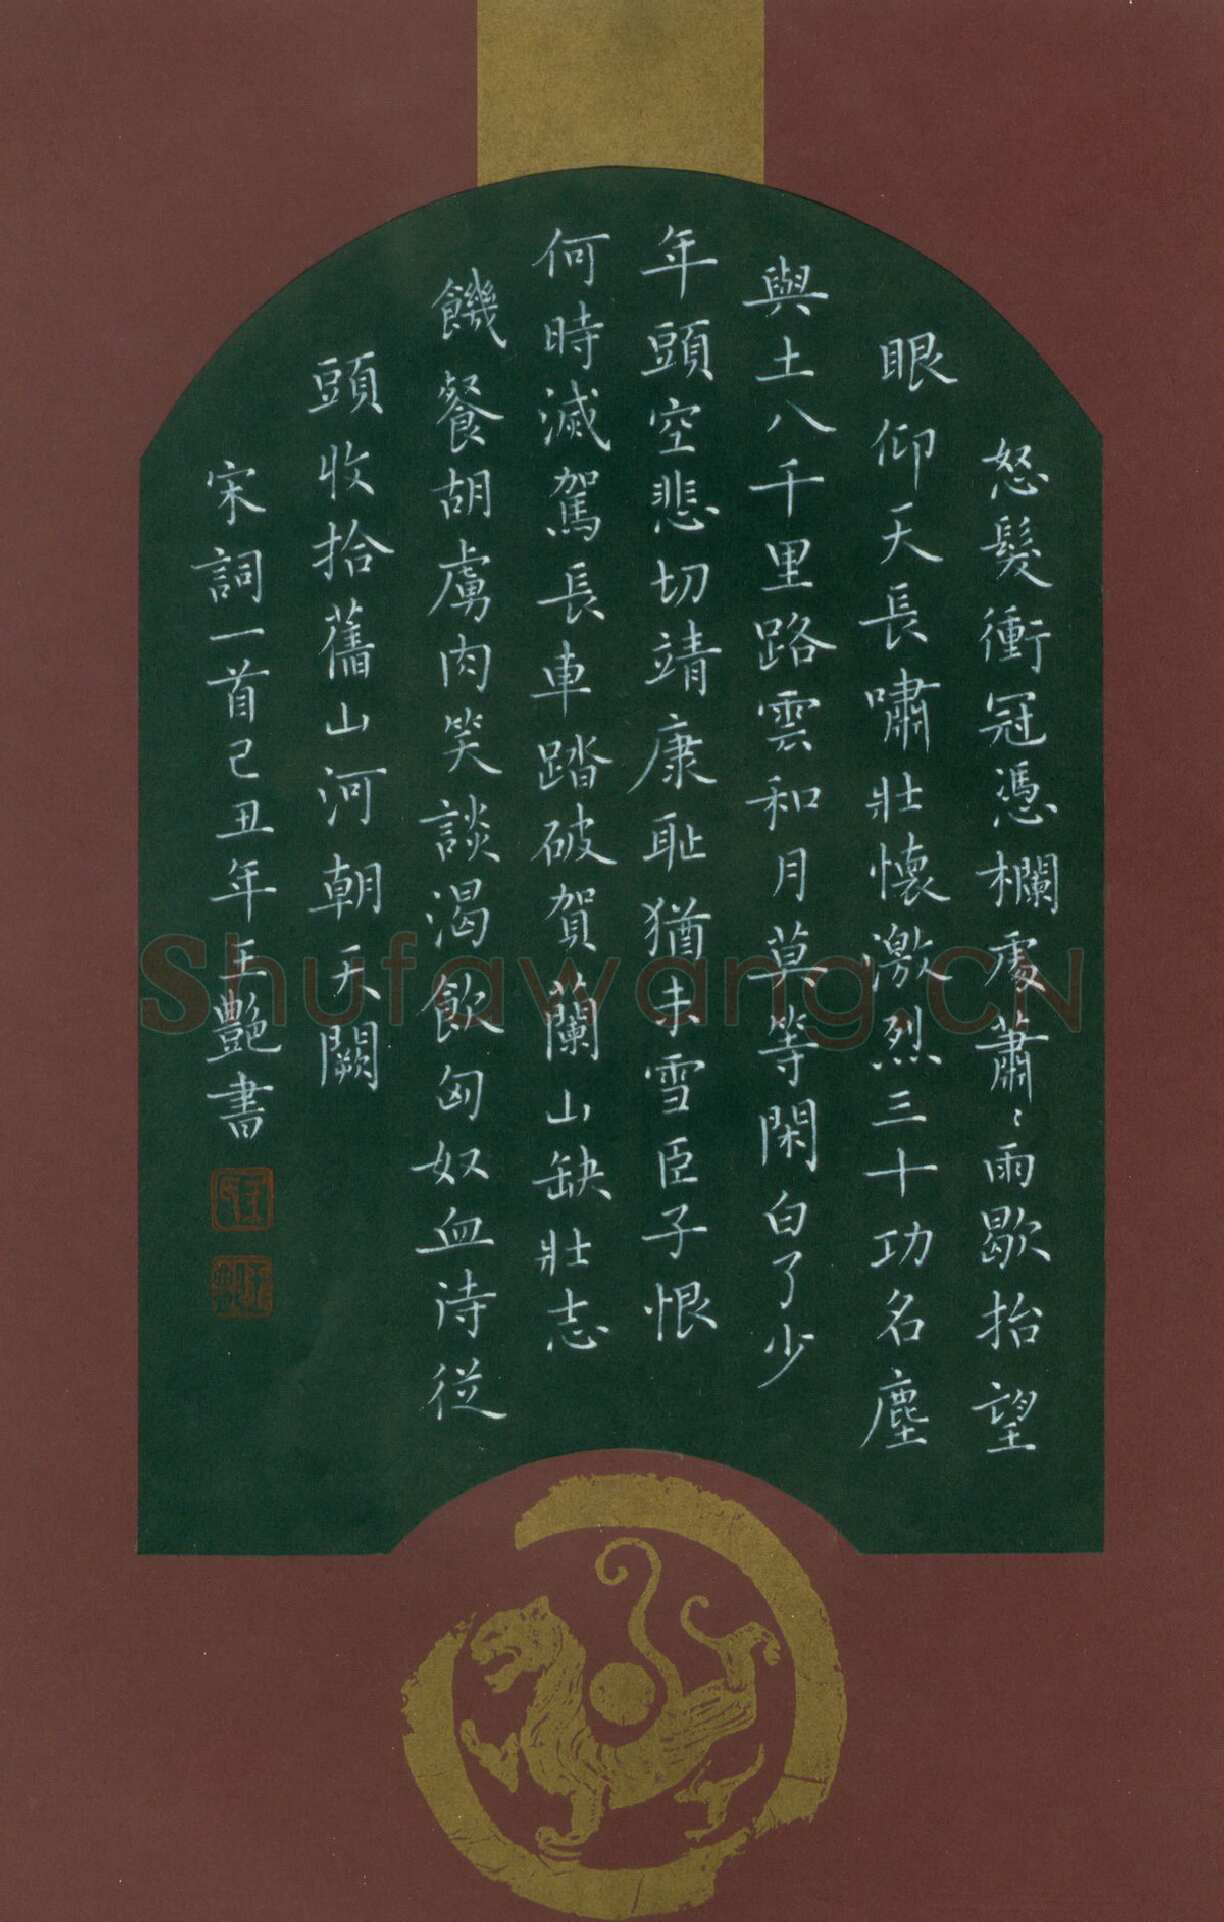 怒髮衝冠憑欄處蕭〻雨歇抬望
眼仰天長嘯壯懷激烈三十功名塵
與土八千里路雲和月莫等閑白了少
年頭空悲切靖康恥猶未雪臣子恨
何時滅駕長車踏破賀蘭山缺壯志
饑餐胡虜肉笑談渴飲匈奴血待從
頭收拾舊山河朝天闕
宋詞一首己丑年王艷書
Shufawang.CN